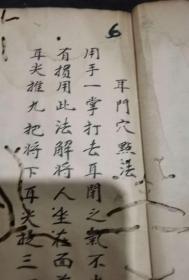 6
耳門穴點法
用手一掌打去耳閉之氣不
有損用此法解將人坐在面
耳尖推九把将下耳尖扳三